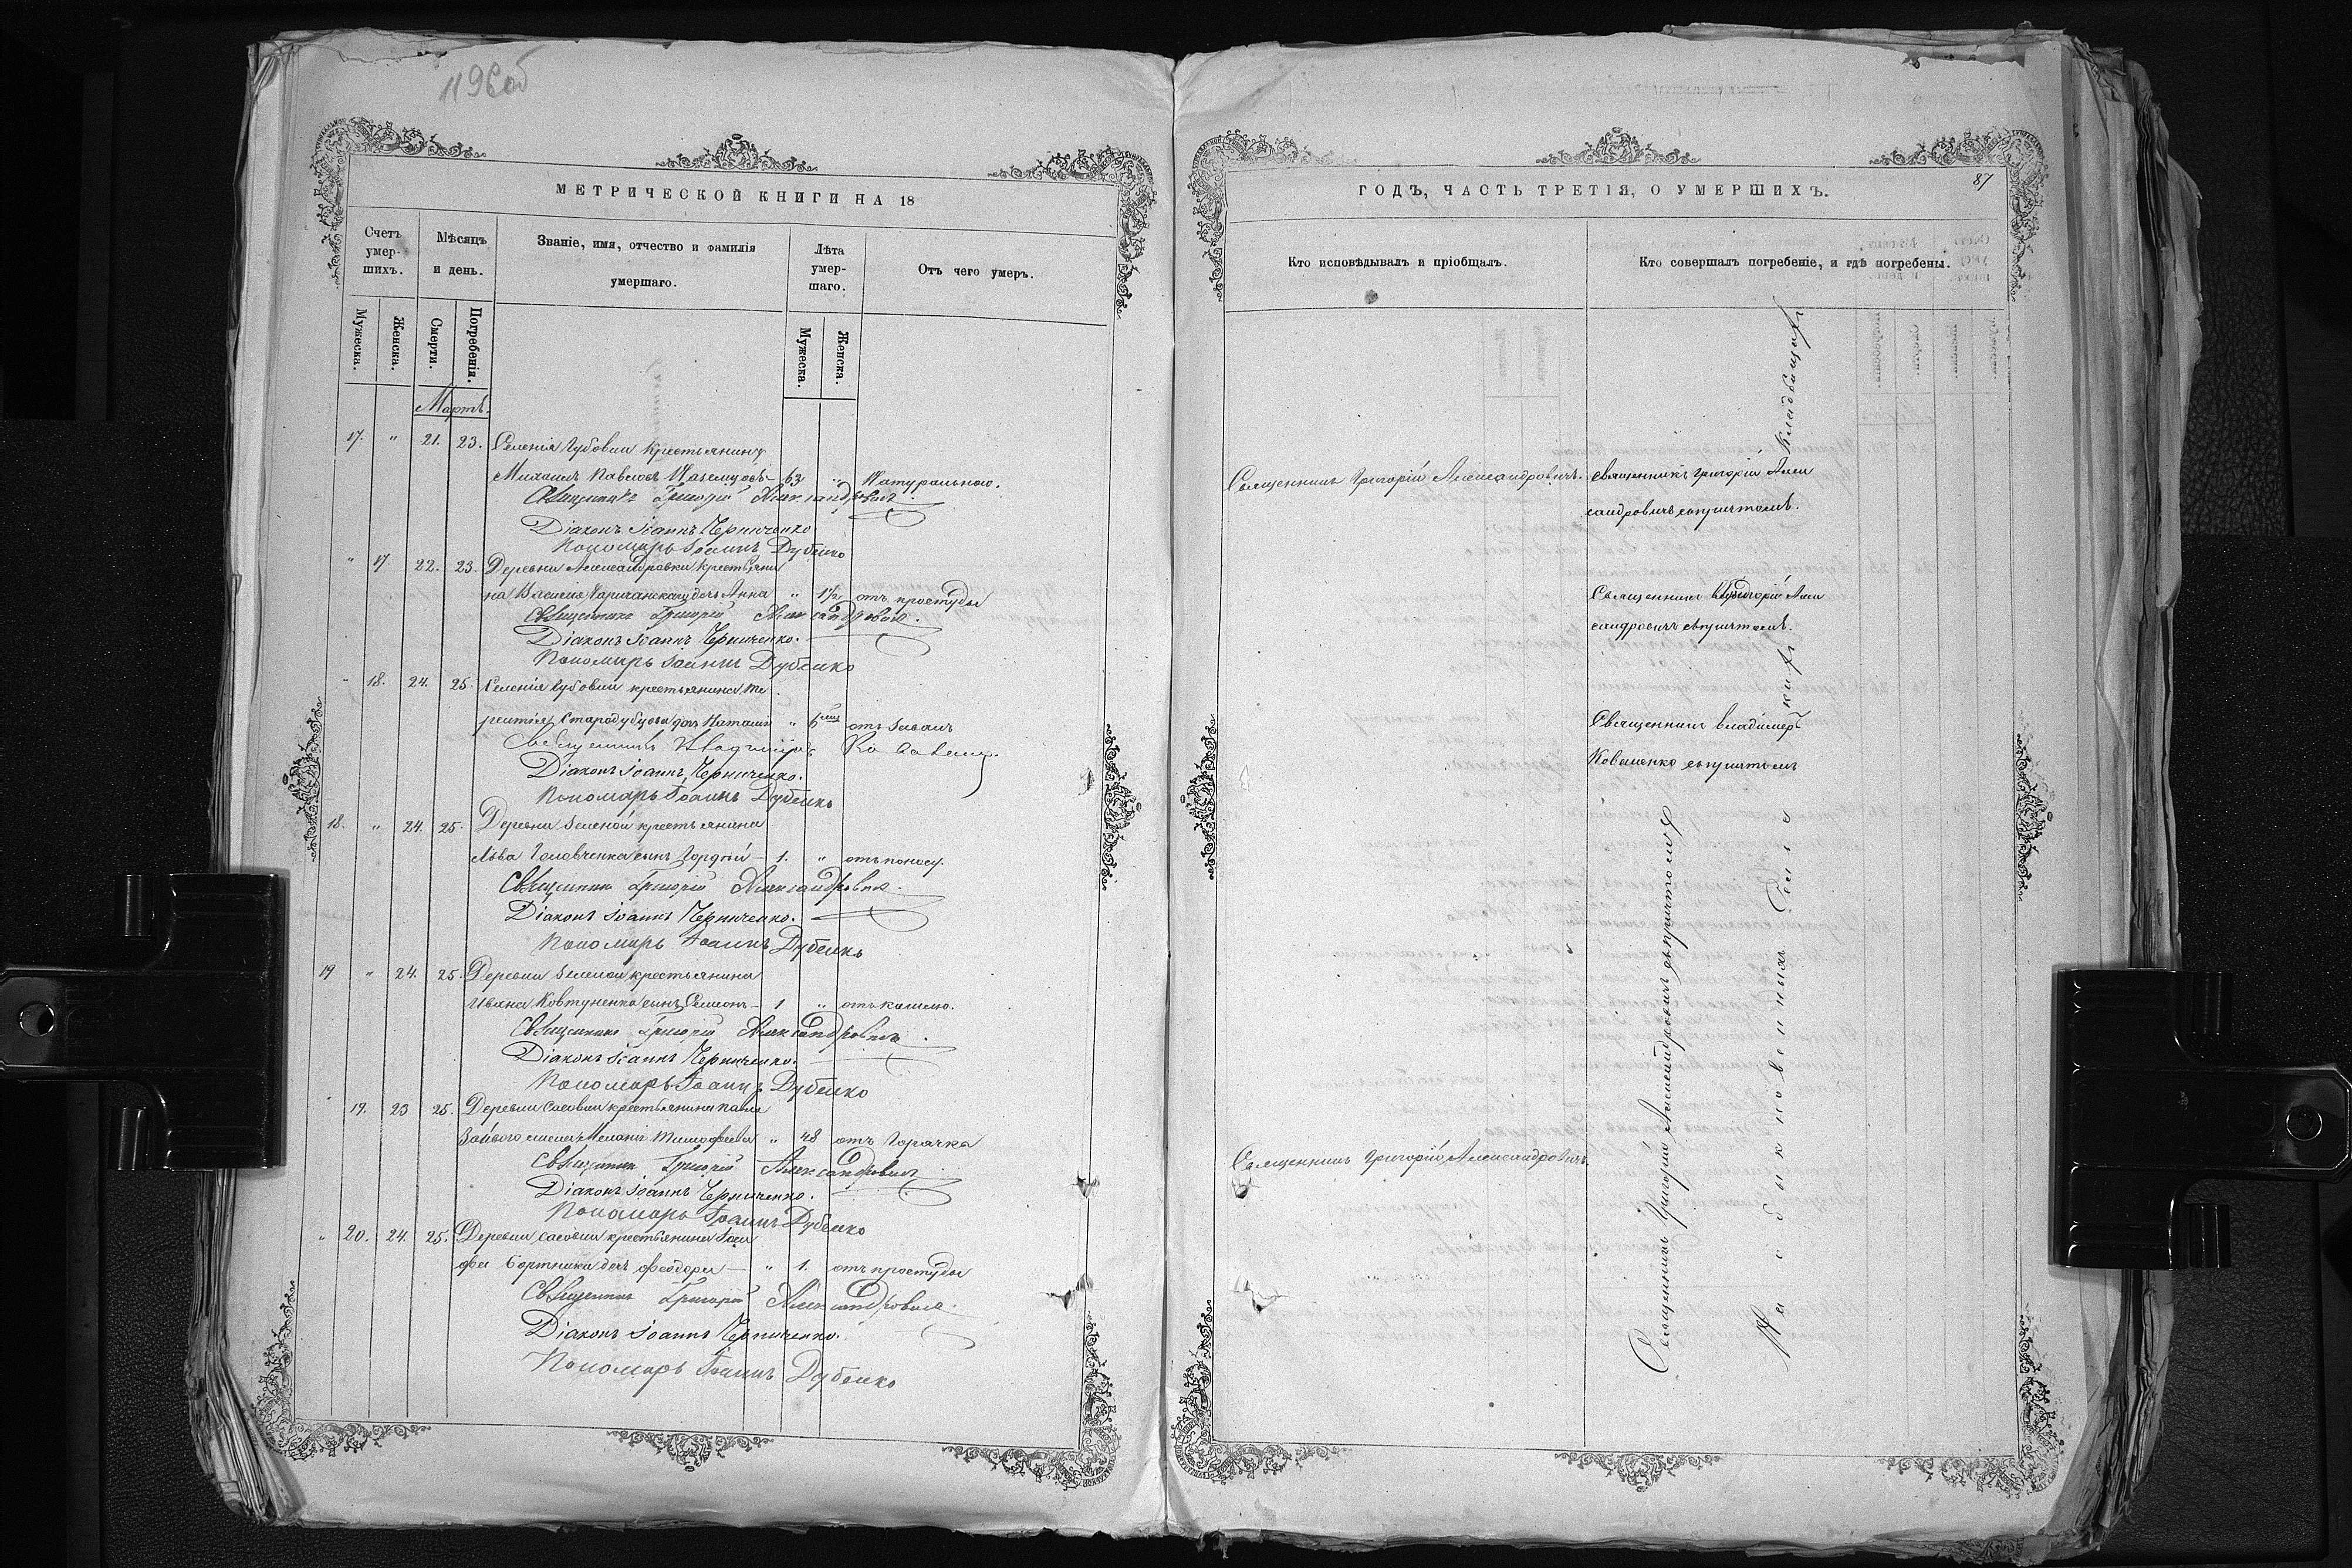 119 об
МЕТРИЧЕСКОЙ КНИГИ НА 18
Счетъ умер-шихъ.
Мѣсяцъ и день.
Званіе, имя, отчество и фамилія умершаго.
Лѣта умер-шаго.
Отъ чего умеръ.
Мужеска.
Женска.
Смерти.
Погребенія.
Мужеска.
Женска.
Мартъ.
17. " 21. 23. Селенія Губовки крестьянинъ
Михаилъ Павловъ 63 " Натуральною.
Священникъ Григорій Александровичъ.
Діаконъ Іоаннъ Черниченко
Пономарь Іоаннъ Дубенко
" 17 22. 23. Деревни Александровки крестьяни
на Василія дочь Анна " 1½ отъ простуды
Священникъ Григорій Александровичъ.
Діаконъ Іоаннъ Черниченко.
Пономарь Іоаннъ Дубенко
" 18. 24. 25. Селенія Губовки крестьянина Те
рентія Стародубцова дочь Наталия " 6 мѣс
Священникъ Владиміръ Коваленко.
Діаконъ Іоаннъ Черниченко.
Пономарь Іоаннъ Дубенко
18. " 24. 25. Деревни Зеленой крестьянина
Льва Головченка сынъ Гордѣй – 1. " отъ поносу.
Священникъ Григорій Александровичъ.
Діаконъ Іоаннъ Черниченко.
Пономарь Іоаннъ Дубенко
19 " 24. 25. Деревни Зеленой крестьянина
Ивана Ковтуненка сынъ Семеонъ – 1 " отъ кашлю.
Священникъ Григорій Александровичъ.
Діаконъ Іоаннъ Черниченко.
Пономарь Іоаннъ Дубенко
" 19. 23 25. Деревни крестьянина Павла
жена Меланія Тимофеева " 48 отъ Горячка
Священникъ Григорій Александровичъ
Діаконъ Іоаннъ Черниченко.
Пономарь Іоаннъ Дубенко
" 20. 24. 25. Деревни крестьянина Іоси
фа Бортника дочь Феодора – " 1. отъ простуды
Священникъ Григорій Александровичъ.
Діаконъ Іоаннъ Черниченко.
Пономарь Іоаннъ Дубенко
87
ГОДЪ, ЧАСТЬ ТРЕТІЯ, О УМЕРШИХЪ.
Кто исповѣдывалъ и пріобщалъ.
Кто совершалъ погребеніе, и гдѣ погребены.
Священникъ Григорій Александровичъ.
Священникъ Григорій Алек
сандровичъ съ причтомъ.
Священникъ Григорій Алек
сандровичъ съ причтомъ.
Священникъ Владимеръ
Коваленко съ причтомъ
Священникъ Григорій Александровичъ
Священникъ Григорій Александровичъ съ причтомъ
На обыкновенныхъ кладбищахъ